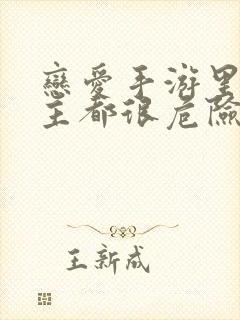 戀愛手游里
主都很危險
王新成